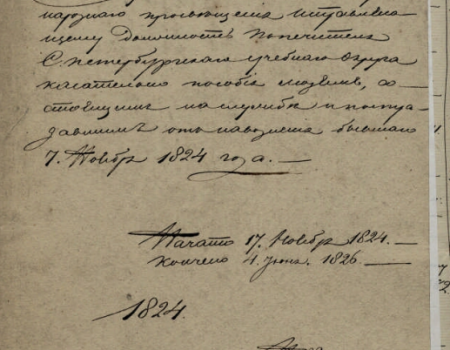 народнаго просвѣщенія исправляю-
щему Должность Попечителя
С. петербургскаго учебнаго Округа
касательно пособія людямъ, со-
стоящимъ на службѣ и постра-
давшимъ отъ наводненія бывшаго
7. Ноября 1824 года. —
Начато 17. Ноября 1824. —
кончено 4. Июня. 1826. —
1824.